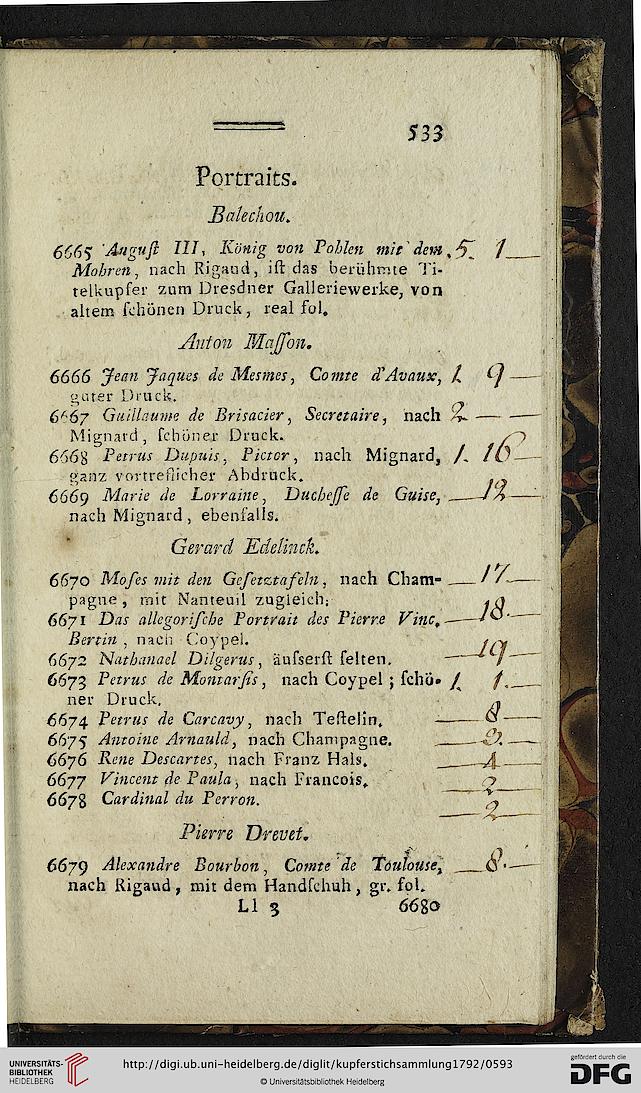 533
Portraits.
Balechou.
6665 Auguſt III, König von Pohlen mit dem 5. 1 —
Mohren, nach Rigaud, iſt das berühmte Ti-
telkupfer zum Dresdner Galleriewerke, von
altem ſchönen Druck, real fol.
Anton Maſſon.
6666 Jean Jaques de Mesmes, Comte d'Avaux, 1. 9 —
guter Druck.
6667 Guillaume de Brisacier, Secretaire, nach 2. — —
Mignard, ſchöner Druck.
6668 Petrus Dupuis, Pictor, nach Mignard, 1. 16 —
ganz vortreflicher Abdruck.
6669 Marie de Lorraine, Ducheſſe de Guise, — 12 —
nach Mignard, ebenfalls.
Gerard Edelinck.
6670 Moſes mit den Geſetztafeln, nach Cham- — 17. —
pagne, mit Nanteuil zugleich.
6671 Das allegoriſche Portrait des Pierre Vinc. — 18. —
Bertin, nach Coypel.
6672 Nathanael Dilgerus, äuſserſt ſelten. — 19 —
6673 Petrus de Montarſis, nach Coypel; ſchö- 1. 1. —
ner Druck.
6674 Petrus de Carcavy, nach Teſtelin. — 8 —
6675 Antoine Arnauld, nach Champagne. — 3. —
6676 Rene Descartes, nach Franz Hals. — 4 —
6677 Vincent de Paula, nach Francois. — 2 —
6678 Cardinal du Perron. — 2 —
Pierre Drevet.
6679 Alexandre Bourbon, Comte de Toulouse, — 8. —
nach Rigaud, mit dem Handſchuh, gr. fol.
Ll 3 6680
UNIVERSITÄTS-
BIBLIOTHEK
HEIDELBERG
http://digi.ub.uni-heidelberg.de/diglit/kupferstichsammlung1792/0593
© Universitätsbibliothek Heidelberg
gefördert durch die
DFG